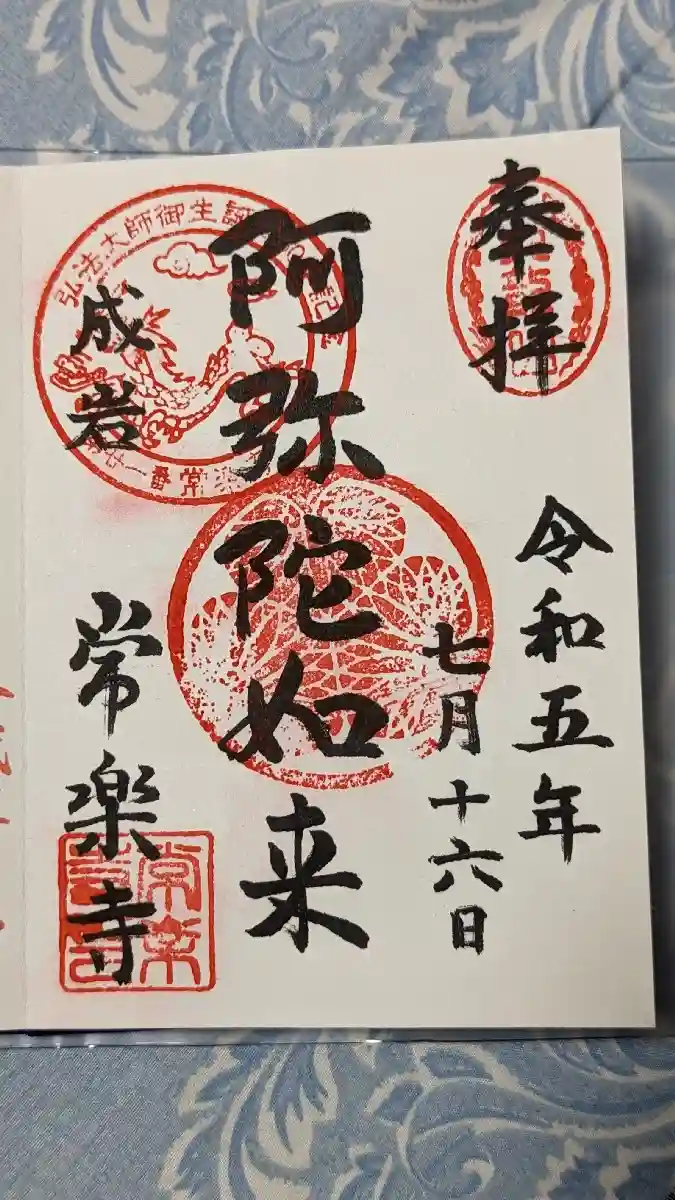 奉拝
令和五年
七月十六日
阿弥陀如来
成岩
常楽寺
弘法大師御生誕
廿一番常楽
常楽